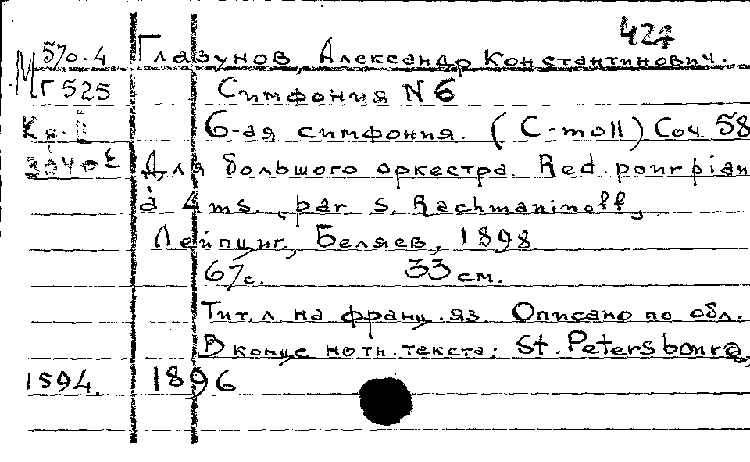 427
570.4 Глазунов, Александр Константинович.
М Г525 Симфония N 6
6-ая симфония. (C-moll) Соч 58
Для большого оркестра. Red. pour pian
à 4 ms. par S. Rachmaninoff,
Лейпциг, Беляев, 1898
67с. 33 см.
Тит. л. на франц. яз. Описано по обл.
В конце нотн. текста: St. Petersbourg,
1594. 1896